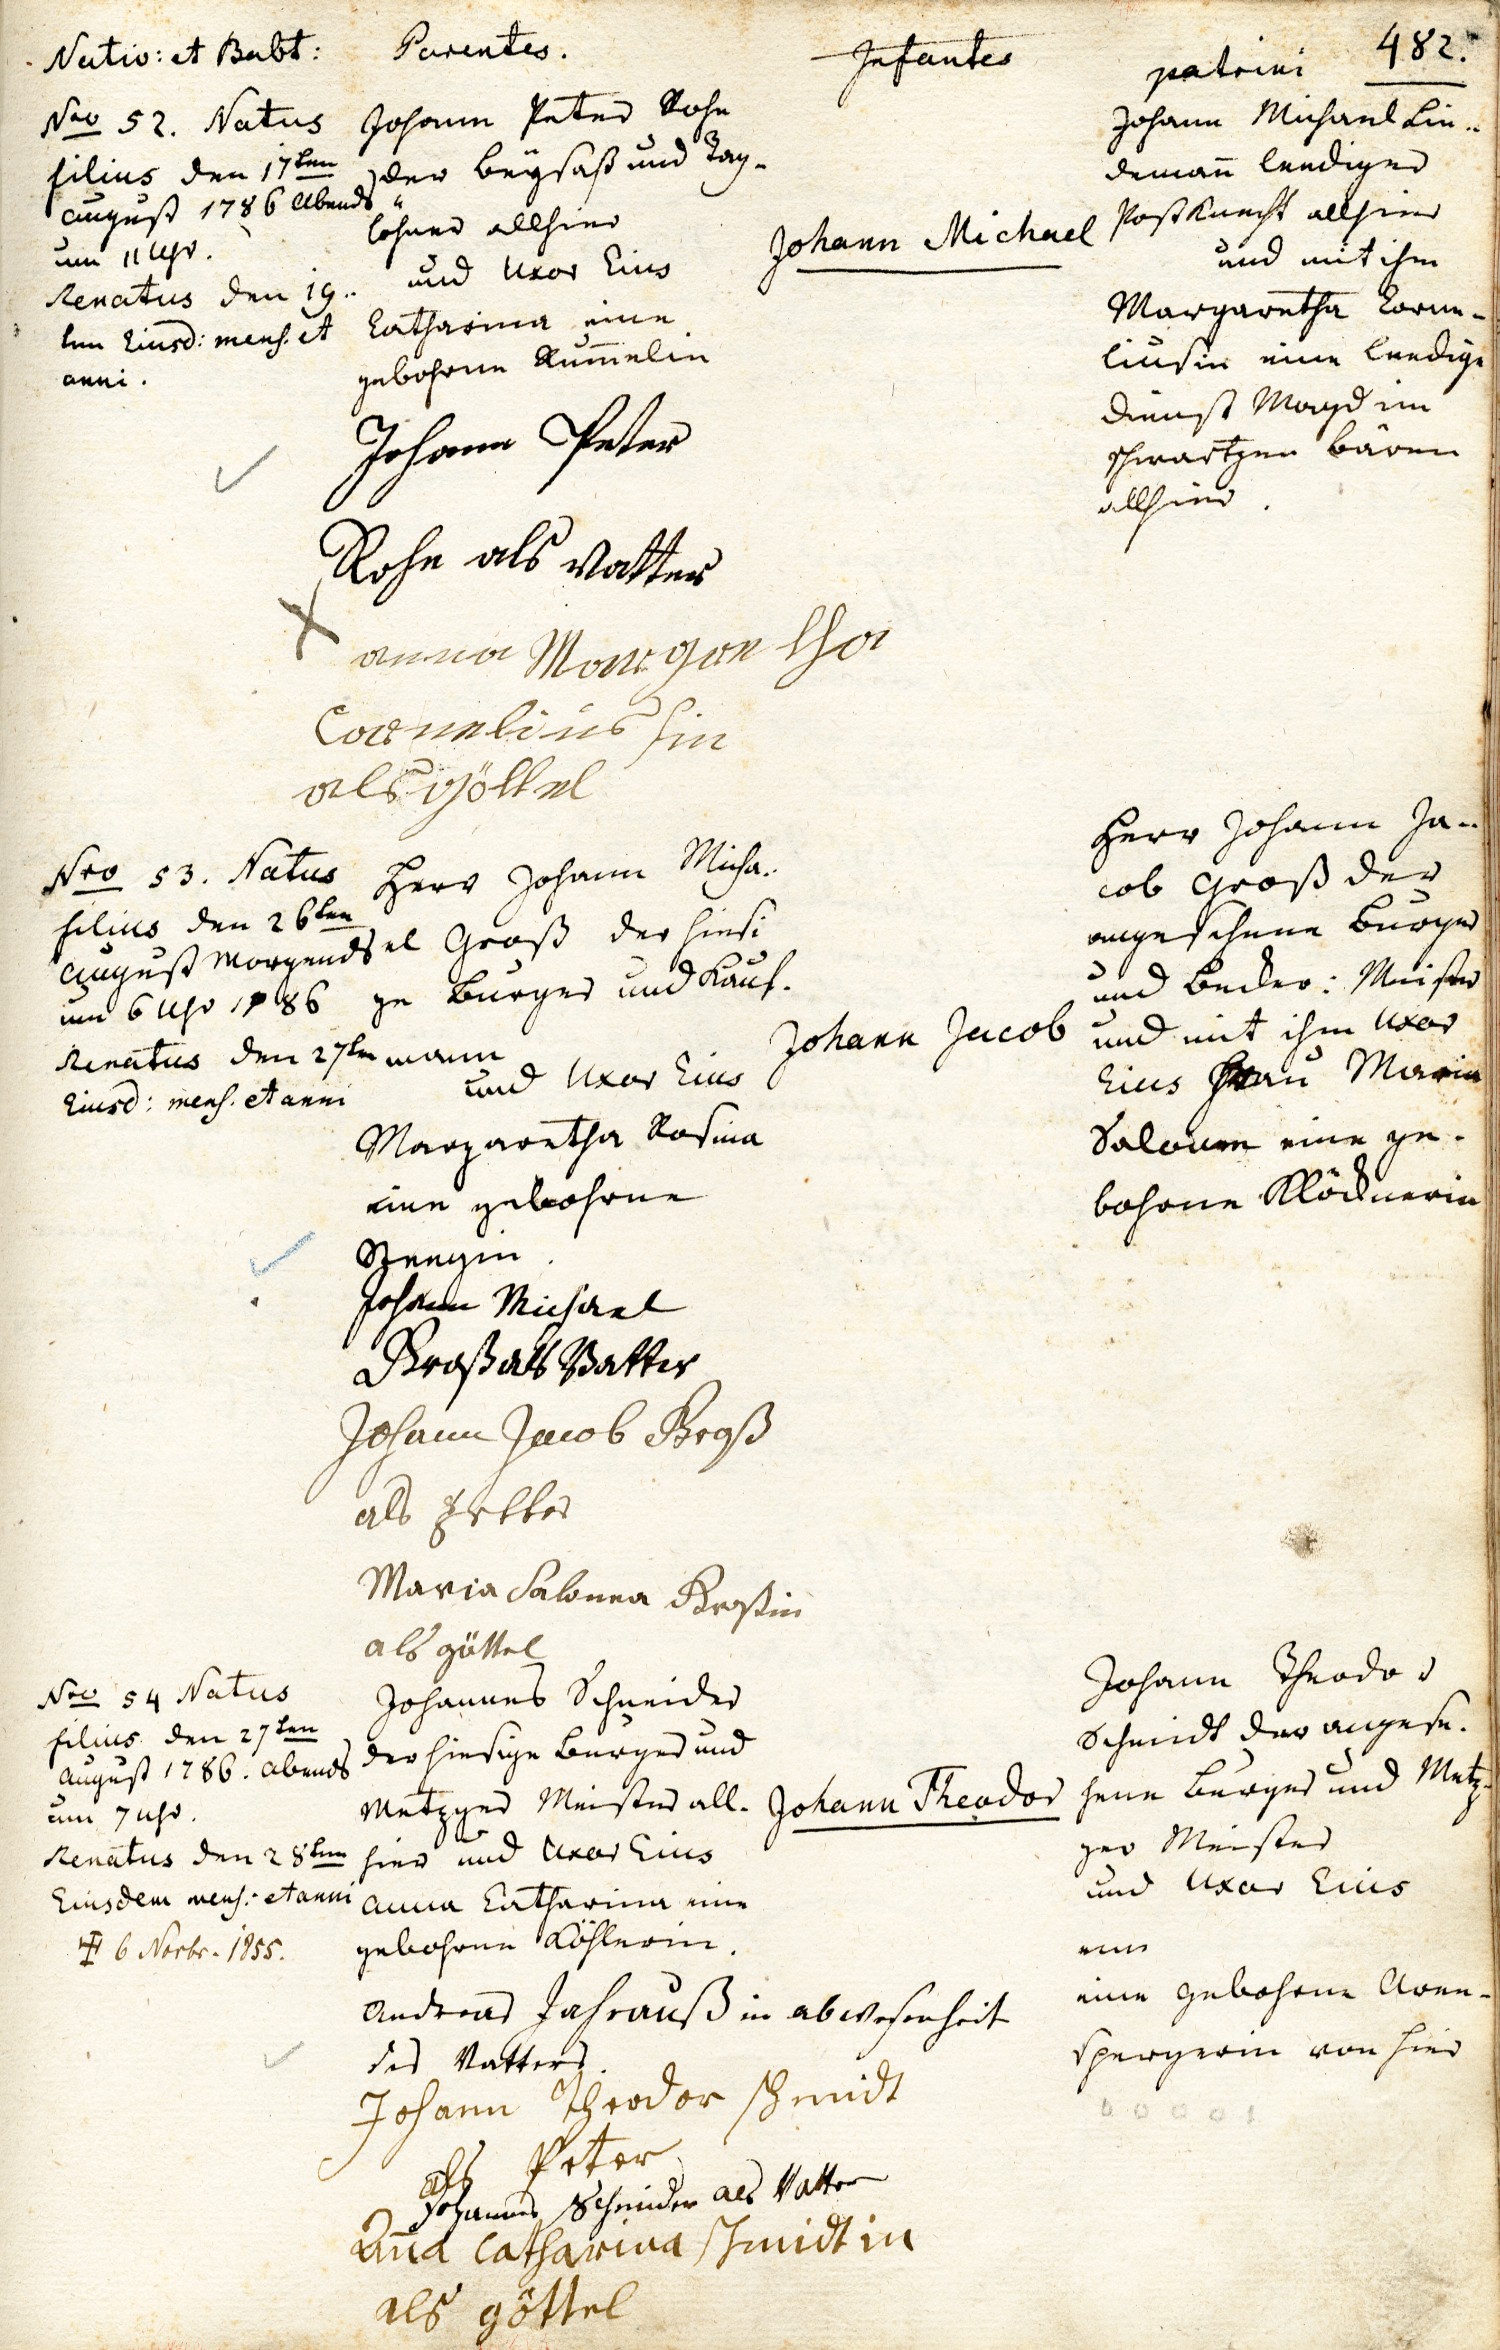 482.
Nativ: et Babt:
Parentes.
Infantes
patrini
Nro 52. Natus
filius den 17ten
August 1786 Abends
um 11 Uhr.
Renatus den 19..
ten Eiusd: mens. et
anni.
Johann Peter Rohe
der Beysaß und Tag-
löhner allhier
und Uxor Eius
Catharina eine
gebohrne Rum̅elin
Johann Peter
Rohe als Vatter
anna Margaretha
Corneliussin
als göttel
Johann Michael
Johann Michael Lin..
deman̅ leediger
Postknecht allhier
und mit ihm
Margaretha Corne-
liusin eine leedige
dienst Magd im
schwartzen bären
allhier.
Nro 53. Natus
filius den 26ten
August Morgends
um 6 Uhr 1786
Renatus den 27ten
Eiusd: mens. et anni
Herr Johann Micha..
el Groß der hiesi
ge Burger und Kauf-
mann
und Uxor Eius
Margaretha Rosina
eine gebohrne
Johann Michael
Groß als Vatter
Johann Jacob Groß
als Petter
Maria Salomea Großin
als göttel
Johann Jacob
Herr Johann Ja..
cob Groß der
angesehene Burger
und Becker: Meister
und mit ihm Uxor
Eius Frau Maria
Salomee eine ge-
bohrne Klöcknerin
Nro 54 Natus
filius den 27ten
August 1786. Abends
um 7 Uhr.
Renatus den 28ten
Eiusdem mens: et anni
6 Novbr. 1855.
Johannes Schneider
der hiesige Burger und
Metzger Meister all-
hier und Uxor Eius
Anna Catharina eine
gebohrne Köhlerin.
Andreas Jahrauß in abwesenheit
des Vatters.
Johann Theodor Schmidt
als Peter
Johannes Schneider als Vatter
An̅a Catharina Schmidtin
als göttel
Johann Theodor
Johann Theodor
Schmidt der angese-
hene Burger und Metz-
ger Meister
und Uxor Eius
eine gebohrne Aren-
spergerin von hier